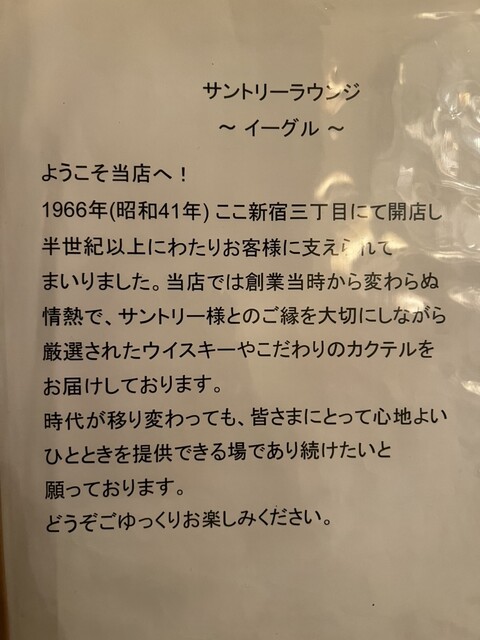 サントリーラウンジ
～ イーグル ～
ようこそ当店へ！
1966年(昭和41年) ここ新宿三丁目にて開店し
半世紀以上にわたりお客様に支えられて
まいりました。当店では創業当時から変わらぬ
情熱で、サントリー様とのご縁を大切にしながら
厳選されたウイスキーやこだわりのカクテルを
お届けしております。
時代が移り変わっても、皆さまにとって心地よい
ひとときを提供できる場であり続けたいと
願っております。
どうぞごゆっくりお楽しみください。